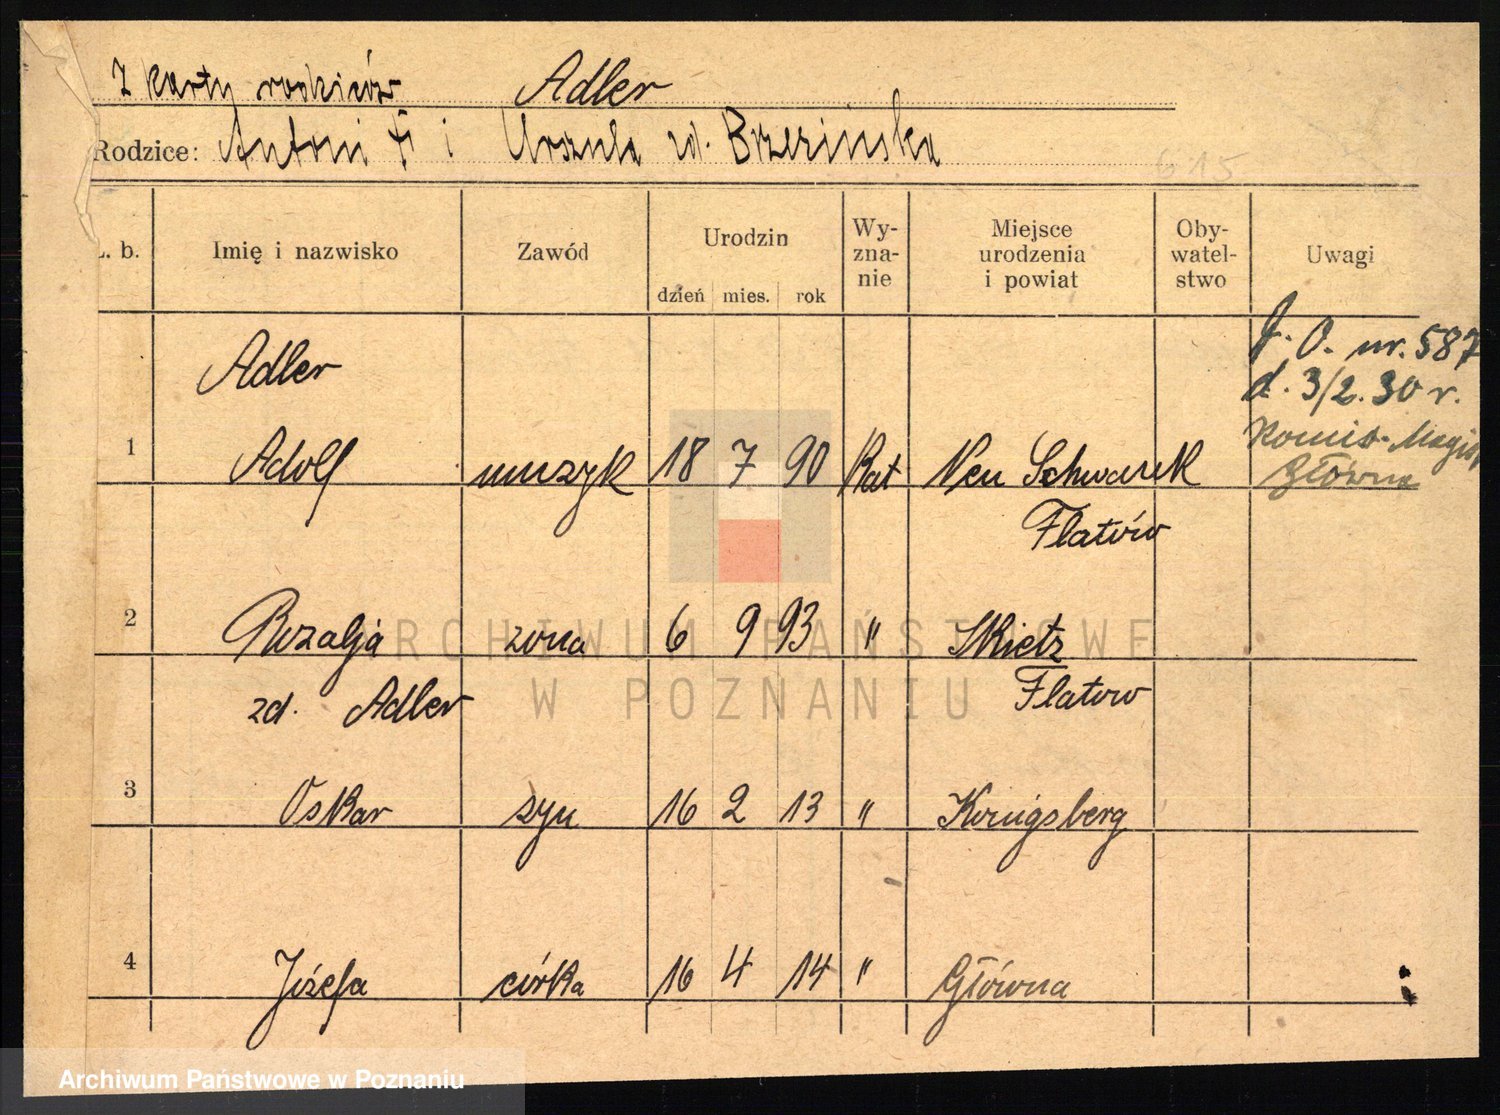 Z karty rodziców Adler
Rodzice: Antoni i Urszula zd. Brzezińska
615
L. b.
Imię i nazwisko
Zawód
Urodzin
dzień mies. rok
Wy-
zna-
nie
Miejsce
urodzenia
i powiat
Oby-
watel-
stwo
Uwagi
Adler
1 Adolf muzyk 18 7 90 Kat Neu
Flatów
O. nr. 587
d. 3/2. 30 r.
Główna
2 Rozalja żona 6 9 93 "
zd. Adler Flatow
3 Oskar syn 16 2 13 " Königsberg
4 Józefa córka 16 4 14 " Główna
ARCHIWUM PAŃSTWOWE
W POZNANIU
Archiwum Państwowe w Poznaniu